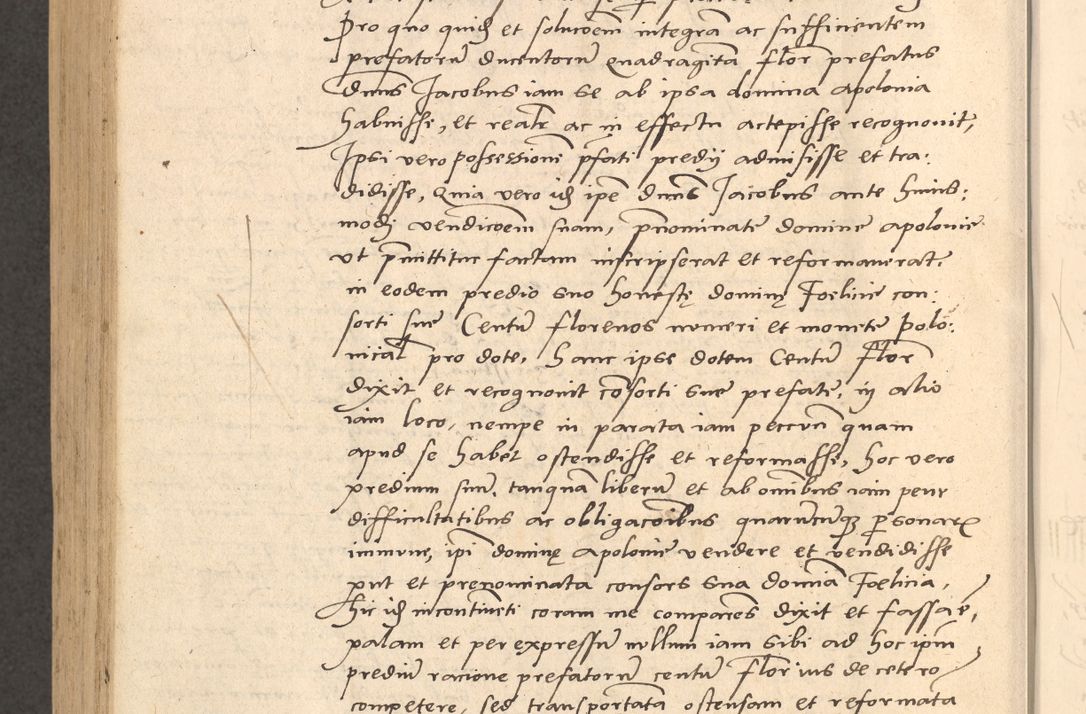 Pro quo quidē et solucōem integrā ac sufficientem
prefatorū ducentorū quadragītā florē prefatus
dn̄us Jacobus iam se ab ipsa domina apolonia
habuisse, et realr̄ ac in effectu accepisse recognouit,
Ipsi vero possessionē pn̄fati predij admisisse et tra:
didisse, Quia vero idē ipē dn̄us Jacobus ante huius:
modj vendicōem suam, pn̄ominate domine apolonie
vt pn̄mittitur factam inscripserat et reformauerat,
in eodem predio suo honestę dominę Foelicie con:
sorti sue Centū florenos numeri et monete polo:
nical̄ pro dote, hanc ipse dotem Centū florē
dixit et recognouit cōsorti sue prefate, in alio
iam loco, nempe in parata iam peccun̄ quam
apud se habet ostendisse et reformasse, hoc vero
predium suū, tanquā liberū et ab omībus iam penr
difficultatibus ac obligacōibus quarūcūqȝ psonarꝝ
immune, ipī dominę apolonie vendere et vendidisse
put et prenominata consors sua domīa Foelicia,
hic idē incontinēti coram me comparēs dixit et fassa ē,
palam et per expressū nullum iam sibi ad hoc ipm̄
prediū racione prefatorū centū florīus de cetero
competere, sed transportatā ostensam et reformatā